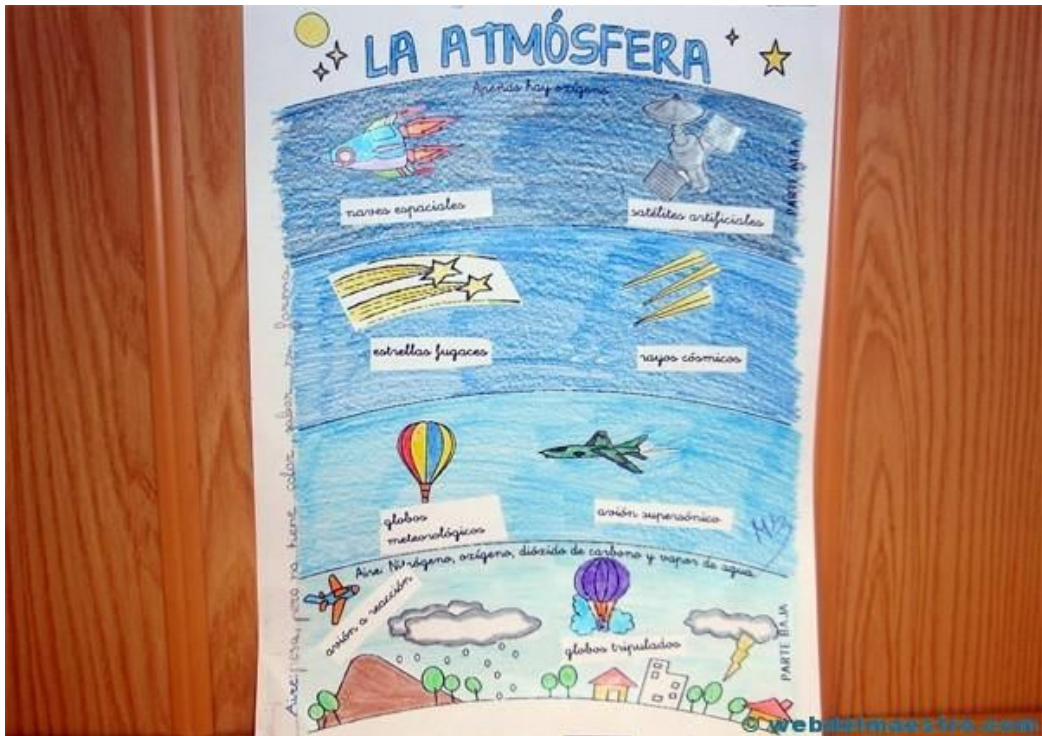 LA ATMÓSFERA
Apenas hay oxígeno
PARTE ALTA
naves espaciales
satélites artificiales
estrellas fugaces
rayos cósmicos
globos
meteorológicos
avión supersónico
MB
Aire: Nitrógeno, oxígeno, dióxido de carbono y vapor de agua.
avión a reacción
globos tripulados
PARTE BAJA
Aire: pesa, pero no tiene color, sabor, ni forma
© webdelmaestro.com